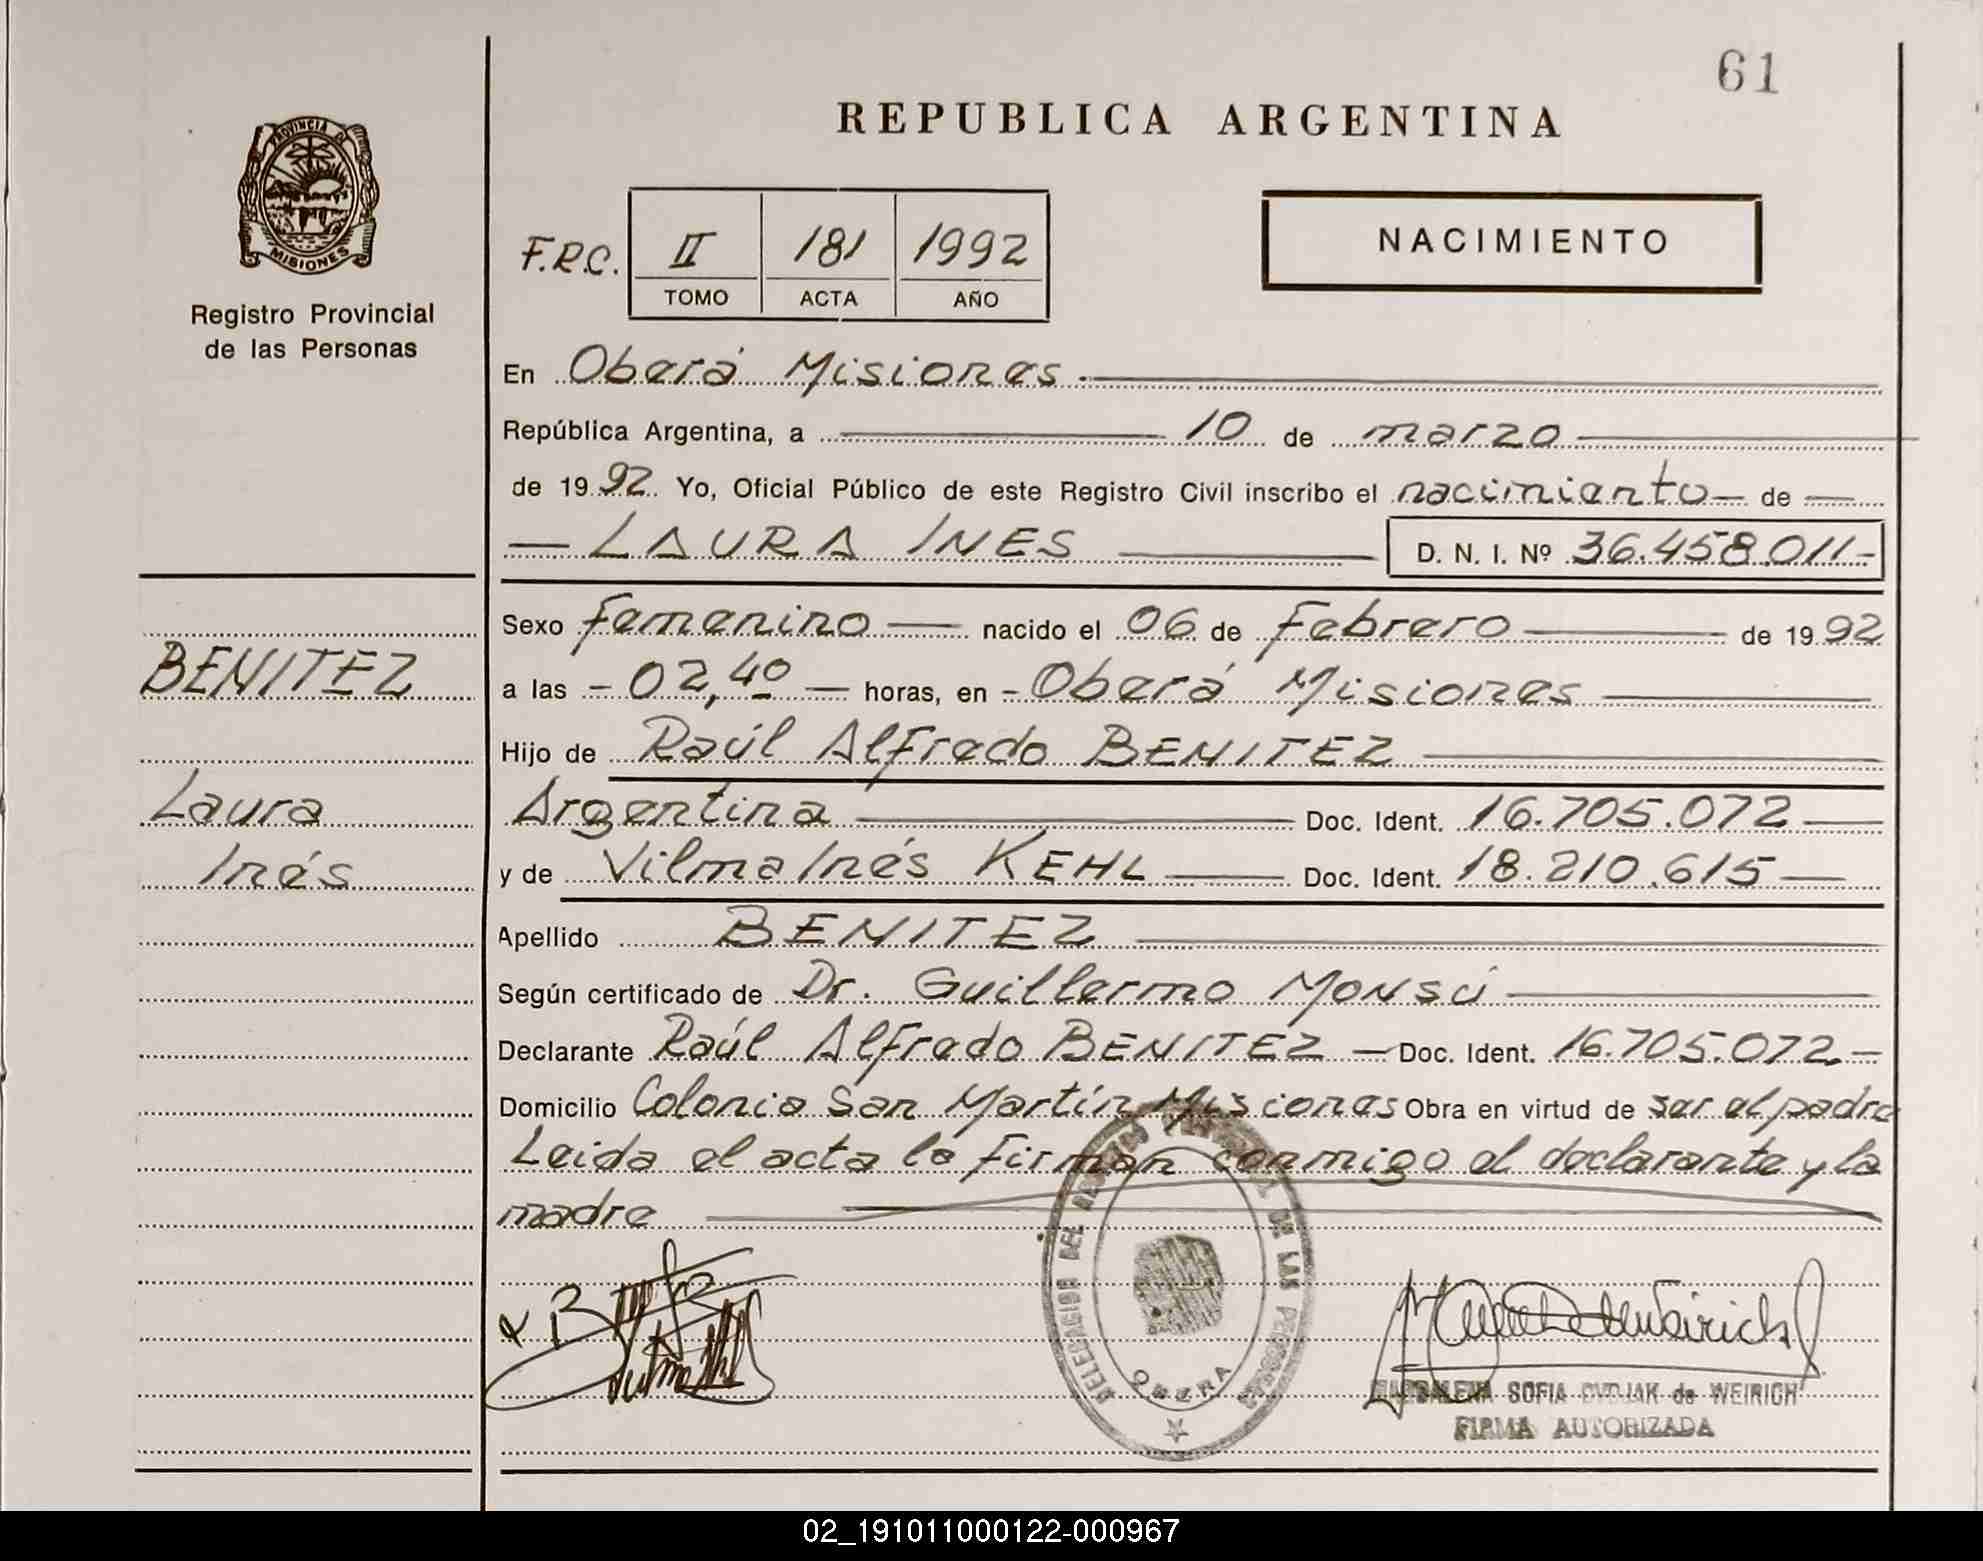 61
REPUBLICA ARGENTINA
PROVINCIA DE
MISIONES
Registro Provincial
de las Personas
F.R.C. II 181 1992
TOMO ACTA AÑO
NACIMIENTO
En Oberá Misiones.
República Argentina, a 10 de marzo
de 1992. Yo, Oficial Público de este Registro Civil inscribo el nacimiento de
LAURA INES D. N. I. Nº 36.458.011.-
BENITEZ
Laura
Inés
Sexo femenino nacido el 06 de Febrero de 1992
a las - 02,40 - horas, en - Oberá Misiones
Hijo de Raúl Alfredo BENITEZ
Argentina Doc. Ident. 16.705.072
y de Vilma Inés KEHL Doc. Ident. 18.210.615
Apellido BENITEZ
Según certificado de Dr. Guillermo MONSÚ
Declarante Raúl Alfredo BENITEZ - Doc. Ident. 16.705.072.-
Domicilio Colonia San Martín Misiones Obra en virtud de ser el padre
Leida el acta la firman conmigo el declarante y la
madre
DELEGACION DEL DE LAS PERSONAS
OBERA
SOFIA de WEIRICH
FIRMA AUTORIZADA
02_191011000122-000967